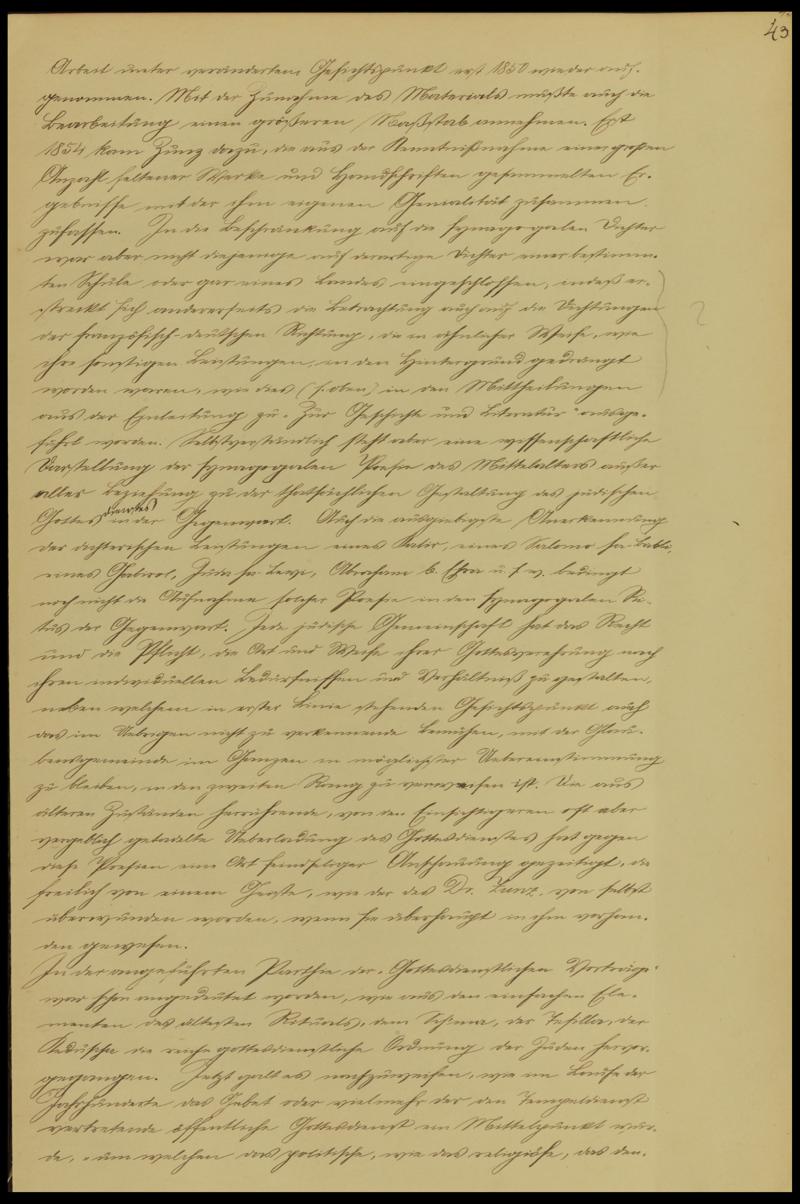 43
Arbeit unter verändertem Gesichtspunkt erst 1850 wieder auf-
genommen. Mit der Zunahme des Materials mußte auch die
Bearbeitung einen größeren Maßstab annehmen. Erst
1854 kam Zunz dazu, die aus der Kenntnißnahme einer großen
Anzahl seltener Werke und Handschriften gesammelten Er-
gebnisse mit der ihm eigenen Genialität zusammen
zufassen. In die Beschränkung auf die synagogalen Dichter
war aber nicht diejenige auf derartige Dichter einer bestimm-
ten Schule oder gar eines Landes eingeschlossen, indeß er-
streckt sich andererseits die Betrachtung auch auf die Dichtungen
der französisch-deutschen Richtung, die in ähnlicher Weise, wie
ihre sonstigen Leistungen, in den Hintergrund gedrängt
worden waren, wie dies (s. oben) in den Mittheilungen
aus der Einleitung zu "Zur Geschichte und Literatur" ausge-
führt worden. Selbstverständlich steht aber eine wissenschaftliche
Darstellung der synagogalen Poesie des Mittelalters außer
aller Beziehung zu der thatsächlichen Gestaltung des jüdischen
Gottesdienstes in der Gegenwart. Auch die ausgiebigste Anerkennung
der dichterischen Leistungen eines Kalir, eines Salomo ha-Babli,
eines Gabirol, Juda ha-Levi, Abraham b. Esra u. s. w. bedingt
noch nicht die Aufnahme solcher Poesie in den synagogalen Ri-
tus der Gegenwart. Jede jüdische Gemeinschaft hat das Recht
und die Pflicht, die Art und Weise ihrer Gottesverehrung nach
ihren individuellen Bedürfnissen und Verhältniß zu gestalten,
neben welchem in erster Linie stehenden Gesichtspunkt auch
das im Uebrigen nicht zu verkennende Bemühen, mit der Glau-
bensgemeinde im Ganzen in möglichster Uebereinstimmung
zu bleiben, in den zweiten Rang zu verweisen ist. Die aus
älteren Zuständen herrührende, von den Einsichtigeren oft aber
vergeblich getadelte Ueberladung des Gottesdienstes hat gegen
diese Poesien eine Art feindseliger Anschauung gezeitigt, die
freilich von einem Geiste, wie der des Dr. Zunz, von selbst
überwunden worden, wenn sie überhaupt in ihm vorhan-
den gewesen.
In der angeführten Parthie der "Gottesdienstlichen Vorträge"
war schon angedeutet worden, wie aus den einfachen Ele-
menten des ältesten Rituals, dem Schema, der Tefilla, der
Keduscha die reiche gottesdienstliche Ordnung der Juden hervor-
gegangen. Jetzt galt es nachzuweisen, wie im Laufe der
Jahrhunderte das Gebet oder vielmehr der den Tempeldienst
vertretende öffentliche Gottesdienst ein Mittelpunkt wur-
de, "um welchen das politische, wie das religiöse, das den-